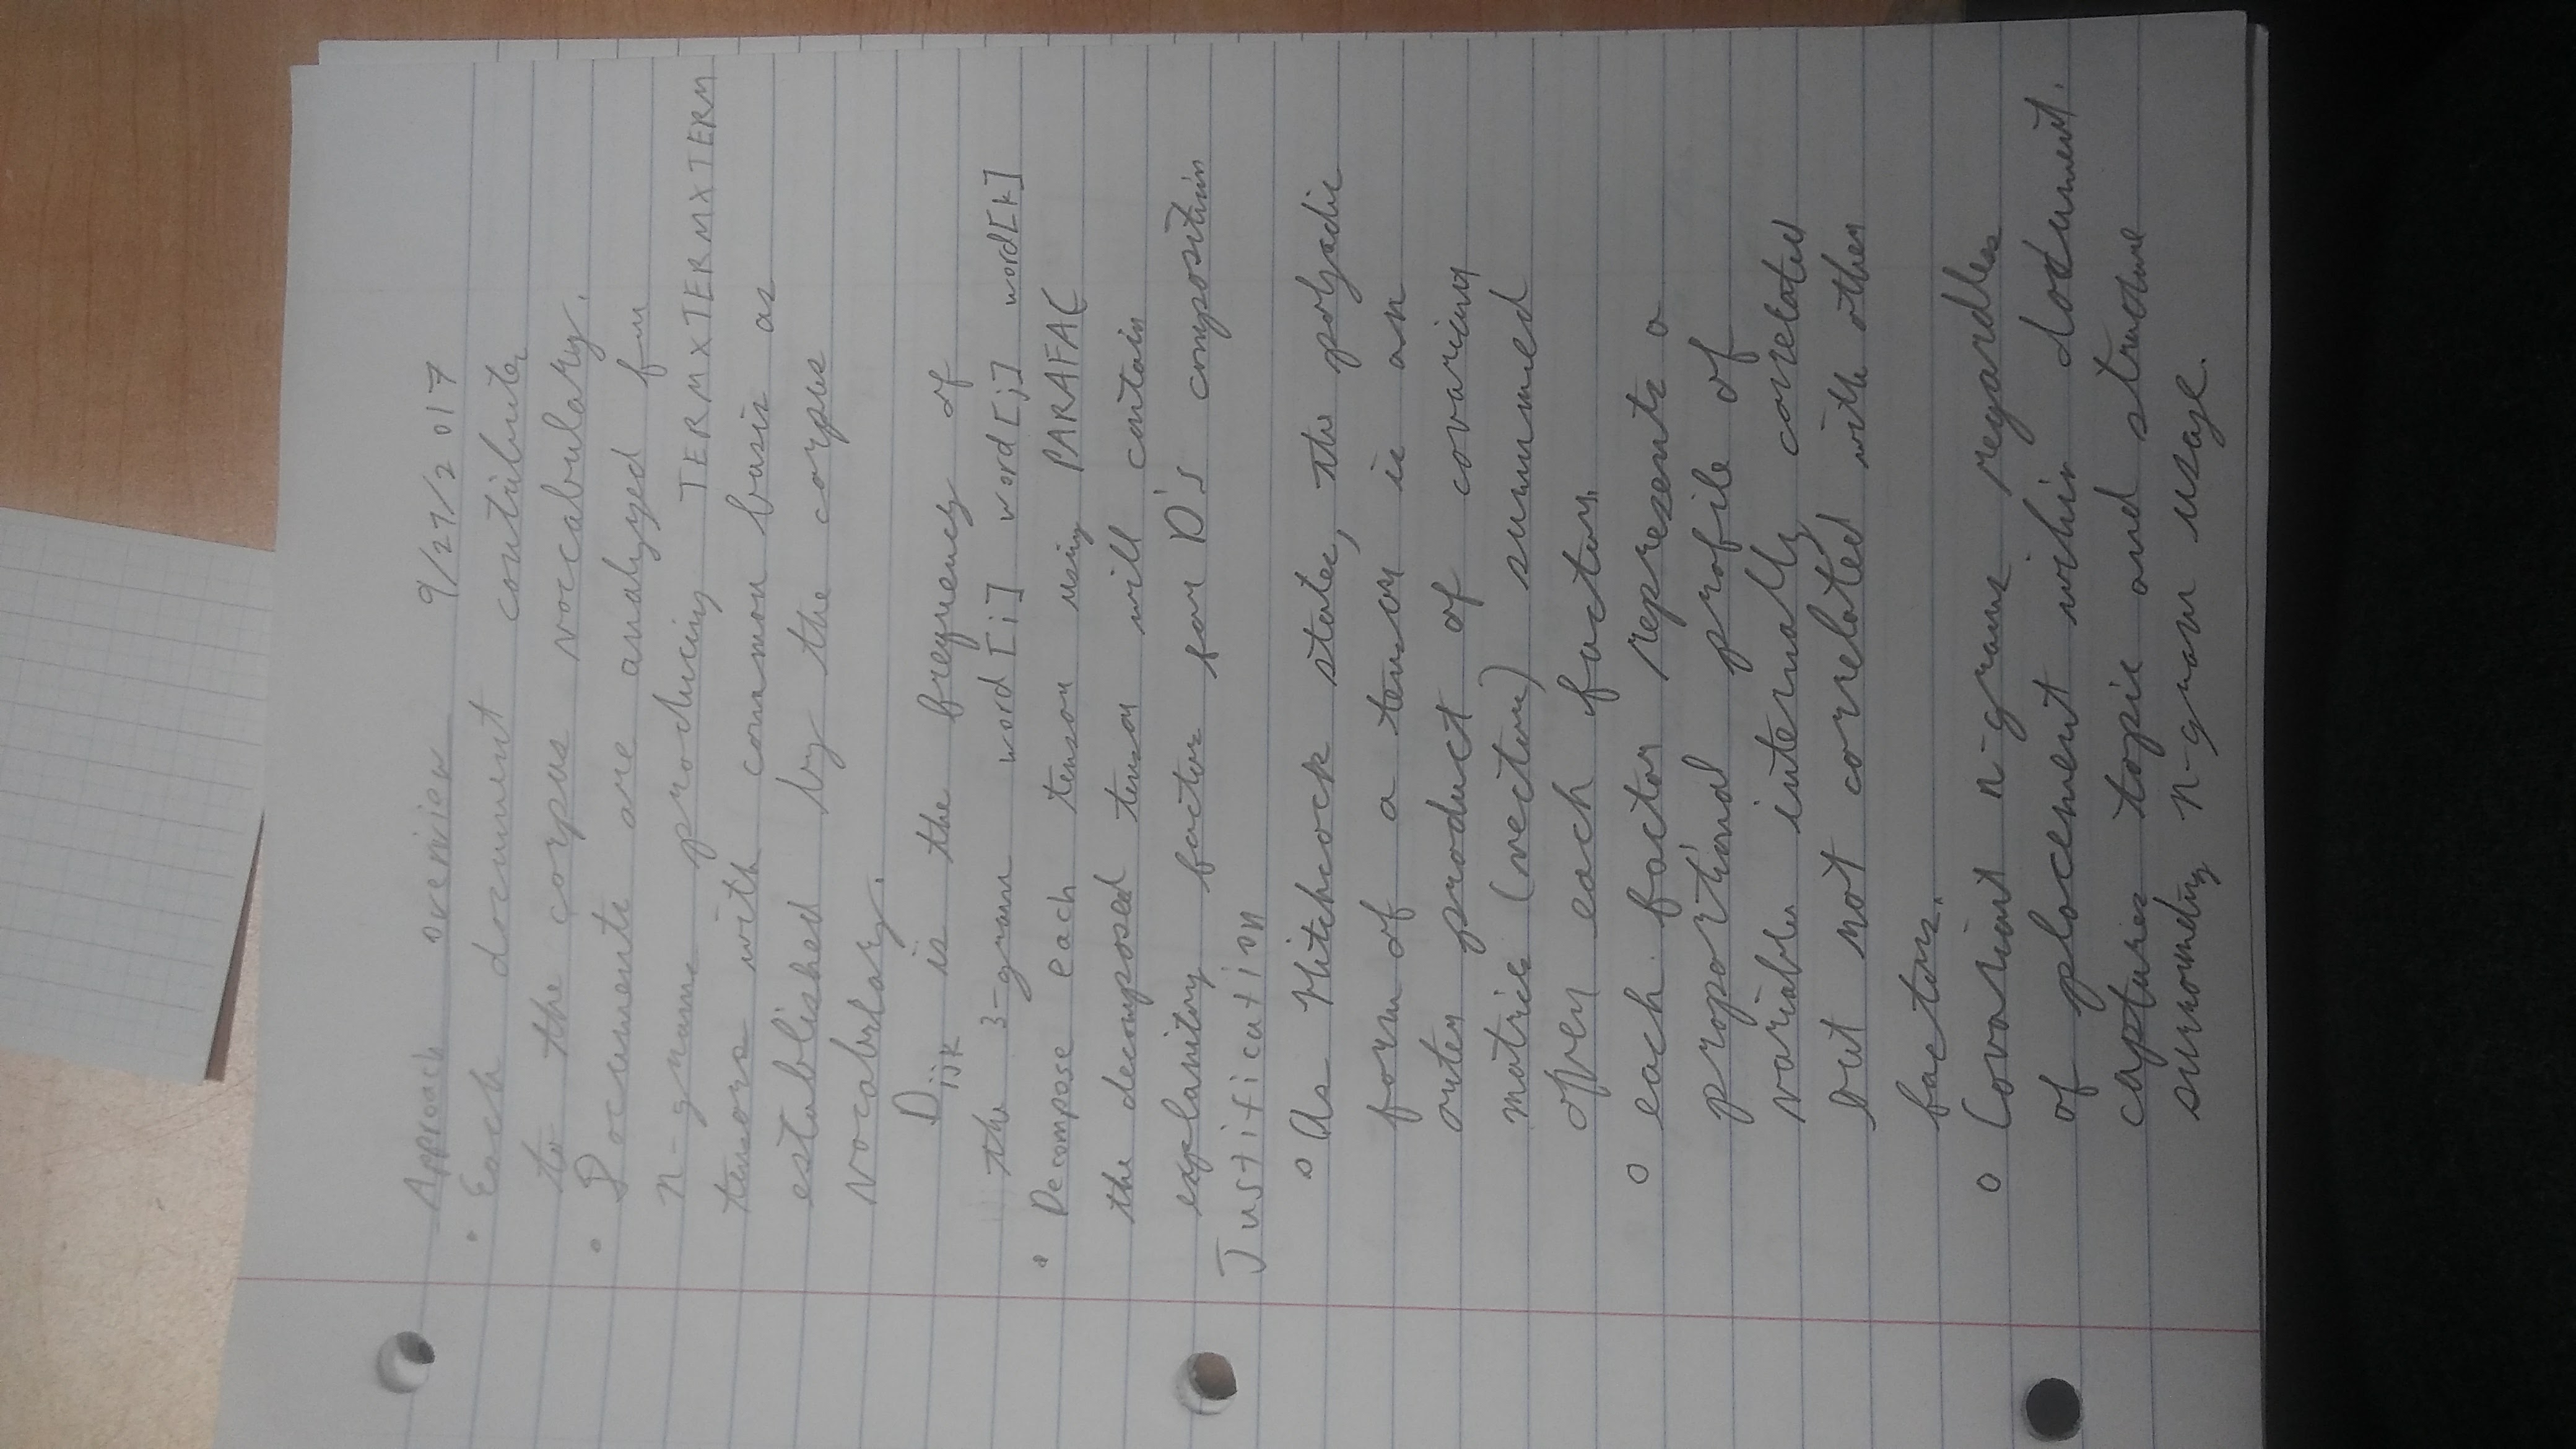 Approach overview 9/27/2017
• Each document contributes
to the corpus voccabulary.
• Documents are analyzed for
n-grams producing TERMXTERMXTERM
tensors with common basis as
established by the corpus
vocabulary.
Dijk is the frequency of
the 3-gram word[i] word[j] word[k]
• Decompose each tensor using PARAFAC
the decomposed tensor will contain
explanitory factors for D's composition
Justification
o As Hitchcock states, the polyadic
form of a tensor is an
outer product of covariant
matrices (vectors) summed
over each factor.
o each factor represents a
proportional profile of
variables internally correlated
but not correlated with other
factors.
o Covariant n-grams regardless
of placement wihin document.
captures topic and structure
surrounding n-gram usage.